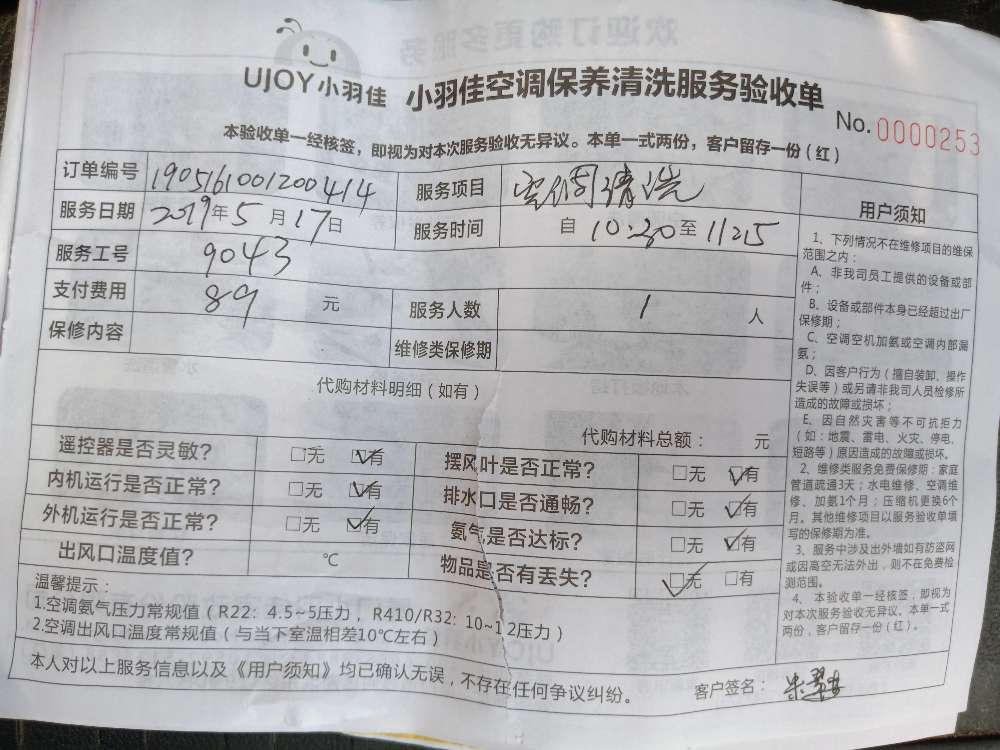 UJOY小羽佳 小羽佳空调保养清洗服务验收单
No. 0000253
本验收单一经核签，即视为对本次服务验收无异议。本单一式两份，客户留存一份（红）
订单编号 1905161001200414 服务项目 空调清洗
服务日期 2019年5月17日 服务时间 自 10:30 至 11:15
服务工号 9043
支付费用 89 元 服务人数 1 人
保修内容 维修类保修期
代购材料明细（如有）
代购材料总额： 元
遥控器是否灵敏？ □无 ☑有 摆风叶是否正常？ □无 ☑有
内机运行是否正常？ □无 ☑有 排水口是否通畅？ □无 ☑有
外机运行是否正常？ □无 ☑有 氨气是否达标？ □无 ☑有
出风口温度值？ ℃ 物品是否有丢失？ ☑无 □有
温馨提示：
1.空调氨气压力常规值（R22：4.5~5压力， R410/R32：10~12压力）
2.空调出风口温度常规值（与当下室温相差10℃左右）
本人对以上服务信息以及《用户须知》均已确认无误，不存在任何争议纠纷。 客户签名：
用户须知
1、下列情况不在维修项目的维保
范围之内：
A、非我司员工提供的设备或部
件；
B、设备或部件本身已经超过出厂
保修期；
C、空调空机加氨或空调内部漏
氨；
D、因客户行为（擅自装卸、操作
失误等）或另请非我司人员检修所
造成的故障或损坏；
E、因自然灾害等不可抗拒力
（如：地震、雷电、火灾、停电、
短路等）原因造成的故障或损坏。
2、维修类服务免费保修期：家庭
管道疏通3天；水电维修、空调维
修、加氨1个月；压缩机更换6个
月。其他维修项目以服务验收单填
写的保修期为准。
3、服务中涉及出外墙如有防盗网
或因高空无法外出，则不在免费检
测范围。
4、本验收单一经核签，即视为
对本次服务验收无异议。本单一式
两份，客户留存一份（红）。